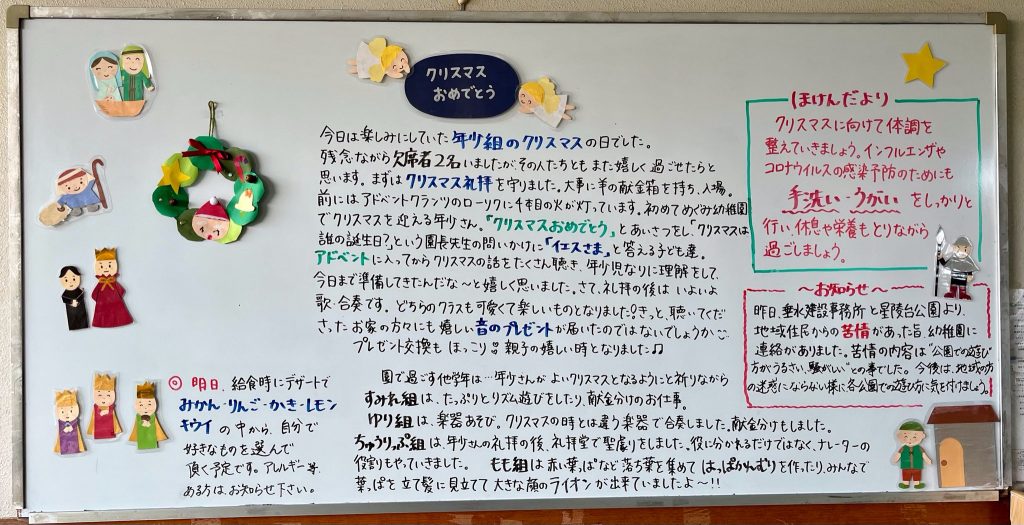 クリスマス
おめでとう
今日は楽しみにしていた年少組のクリスマスの日でした。
残念ながら欠席者2名いましたが、その人たちともまた嬉しく過ごせたらと
思います。まずはクリスマス礼拝を守りました。大事に羊の献金箱を持ち、入場。
前にはアドベントクランツのローソクに1本目の火が灯っています。初めてめぐみ幼稚園
でクリスマスを迎える年少さん。「クリスマスおめでとう」とあいさつをし“クリスマスは
誰の誕生日?”という園長先生の問いかけに「イエスさま」と答える子ども達。
アドベントに入ってからクリスマスの話をたくさん聴き、年少児なりに理解をして、
今日まで準備してきたんだな〜と嬉しく思いました。さて、礼拝の後は いよいよ
歌・合奏です。どちらのクラスも可愛くて楽しいものとなりました!きっと、聴いてくだ
さったお家の方々にも嬉しい音のプレゼントが届いたのではないでしょうか
プレゼント交換も ほっこり 親子の嬉しい時となりました♫
園で過ごす他学年は…年少さんがよいクリスマスとなるようにと祈りながら
すみれ組は、たっぷりとリズム遊びをしたり、献金分けのお仕事。
ゆり組は、楽器あそび。クリスマスの時とは違う楽器で合奏しました。献金分けもしました。
ちゅうりっぷ組は、年少さんの礼拝の後、礼拝堂で聖劇をしました。役に分かれるだけではなく、ナレーターの
役割もやっていきました。 もも組は赤い葉っぱなど落ち葉を集めて はっぱかんむりを作ったり、みんなで
葉っぱを立て髪に見立てて大きな顔のライオンが出来ていましたよ〜!!
◎ 明日、給食時にデザートで
みかん・りんご・かき・レモン
キウイ の中から、自分で
好きなものを選んで
頂く予定です。アレルギー等
ある方は、お知らせ下さい。
ほけんだより
クリスマスに向けて体調を
整えていきましょう。インフルエンザや
コロナウイルスの感染予防のためにも
手洗い・うがい をしっかりと
行い、休息や栄養もとりながら
過ごしましょう。
〜お知らせ〜
昨日、垂水建設事務所と星陵台公園より、
地域住民からの苦情があった旨、幼稚園に
連絡がありました。苦情の内容は“公園での遊び
方がうるさい、騒がしい”との事でした。今後は、地域の方
の迷惑にならない様に各公園での遊び方に気を付けましょう。